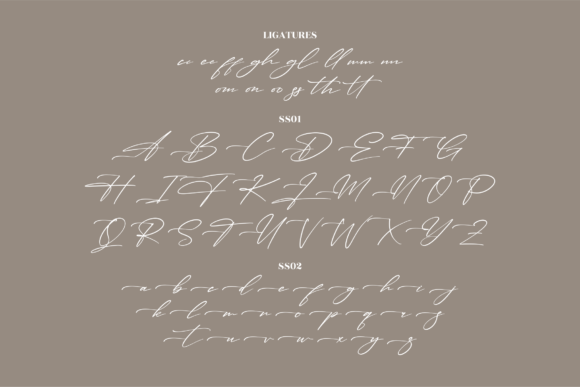 LIGATURES
cc ee ff gh gl ll mm nn
om on oo ss th tt
SS01
A B C D E F G
H I J K L M N O P
Q R S T U V W X Y Z
SS02
a b c d e f g h i j
k l m n o p q r s
t u v w x y z